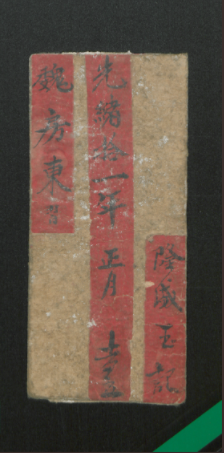 隆盛玉記
光緒拾一年 正月 吉立
魏房東